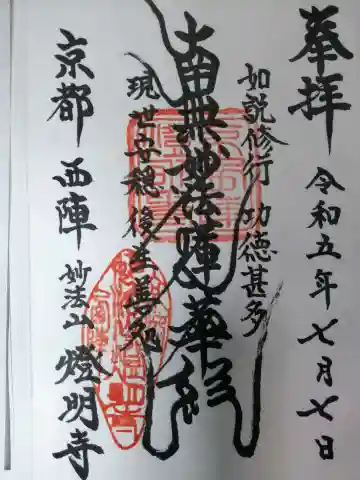 奉拝
令和五年七月七日
如説修行 功徳甚多
南無妙法蓮華経
現世安穏 後生善処
京都 西陣 妙法山 燈明寺